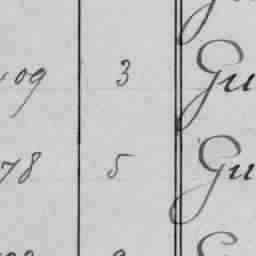 09 3 Gu
78 5 Gu